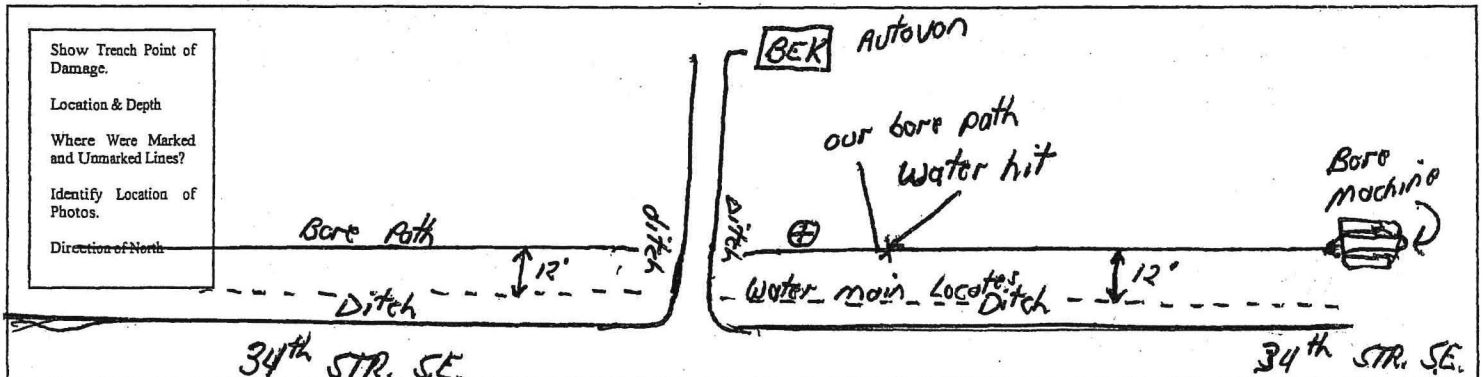 Show Trench Point of
Damage.
Location & Depth
Where Were Marked
and Unmarked Lines?
Identify Location of
Photos.
Direction of North
BEK Autovon
our bore path
Water hit
Bore
Machine
Bore Path
Ditch
Ditch
12'
12'
Water main Locates
Ditch
Ditch
34th STR. S.E.
34th STR. S.E.